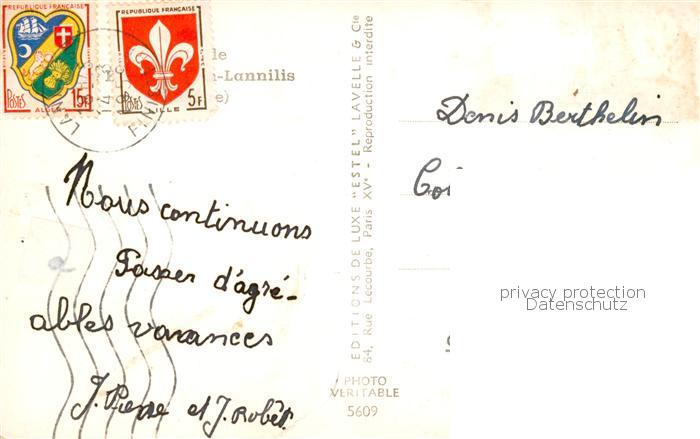 REPUBLIQUE FRANÇAISE
POSTES 15F
ALGER
REPUBLIQUE FRANÇAISE
POSTES 5F
LILLE
le
-Lannilis
e)
Nous continuons
Passer d'agré-
ables vacances
J. Pierre et J. Robêt.
EDITIONS DE LUXE "ESTEL" LAVELLE & Cie
84, Rue Lecourbe, Paris XVe - Reproduction interdite
PHOTO
VERITABLE
5609
Denis Berthelin
privacy protection
Datenschutz